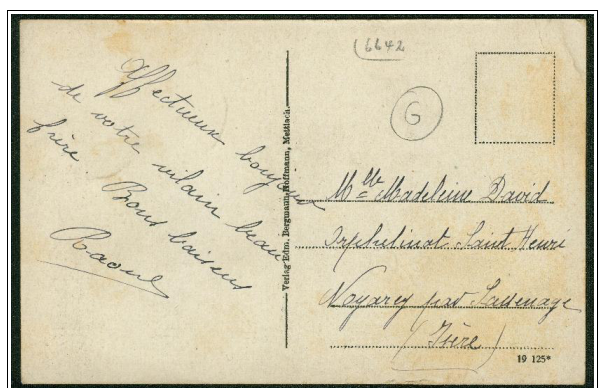 (6642
G
Affectueux bonjour
de votre vilain beau
frère
Bons baisers
Raoul
Verlag Edm. Bergmann-Hoffmann, Mettlach.
Mlle Madeleine David
Orphelinat Saint Henri
Noyarey par Sassenage
(Isère)
19 125*